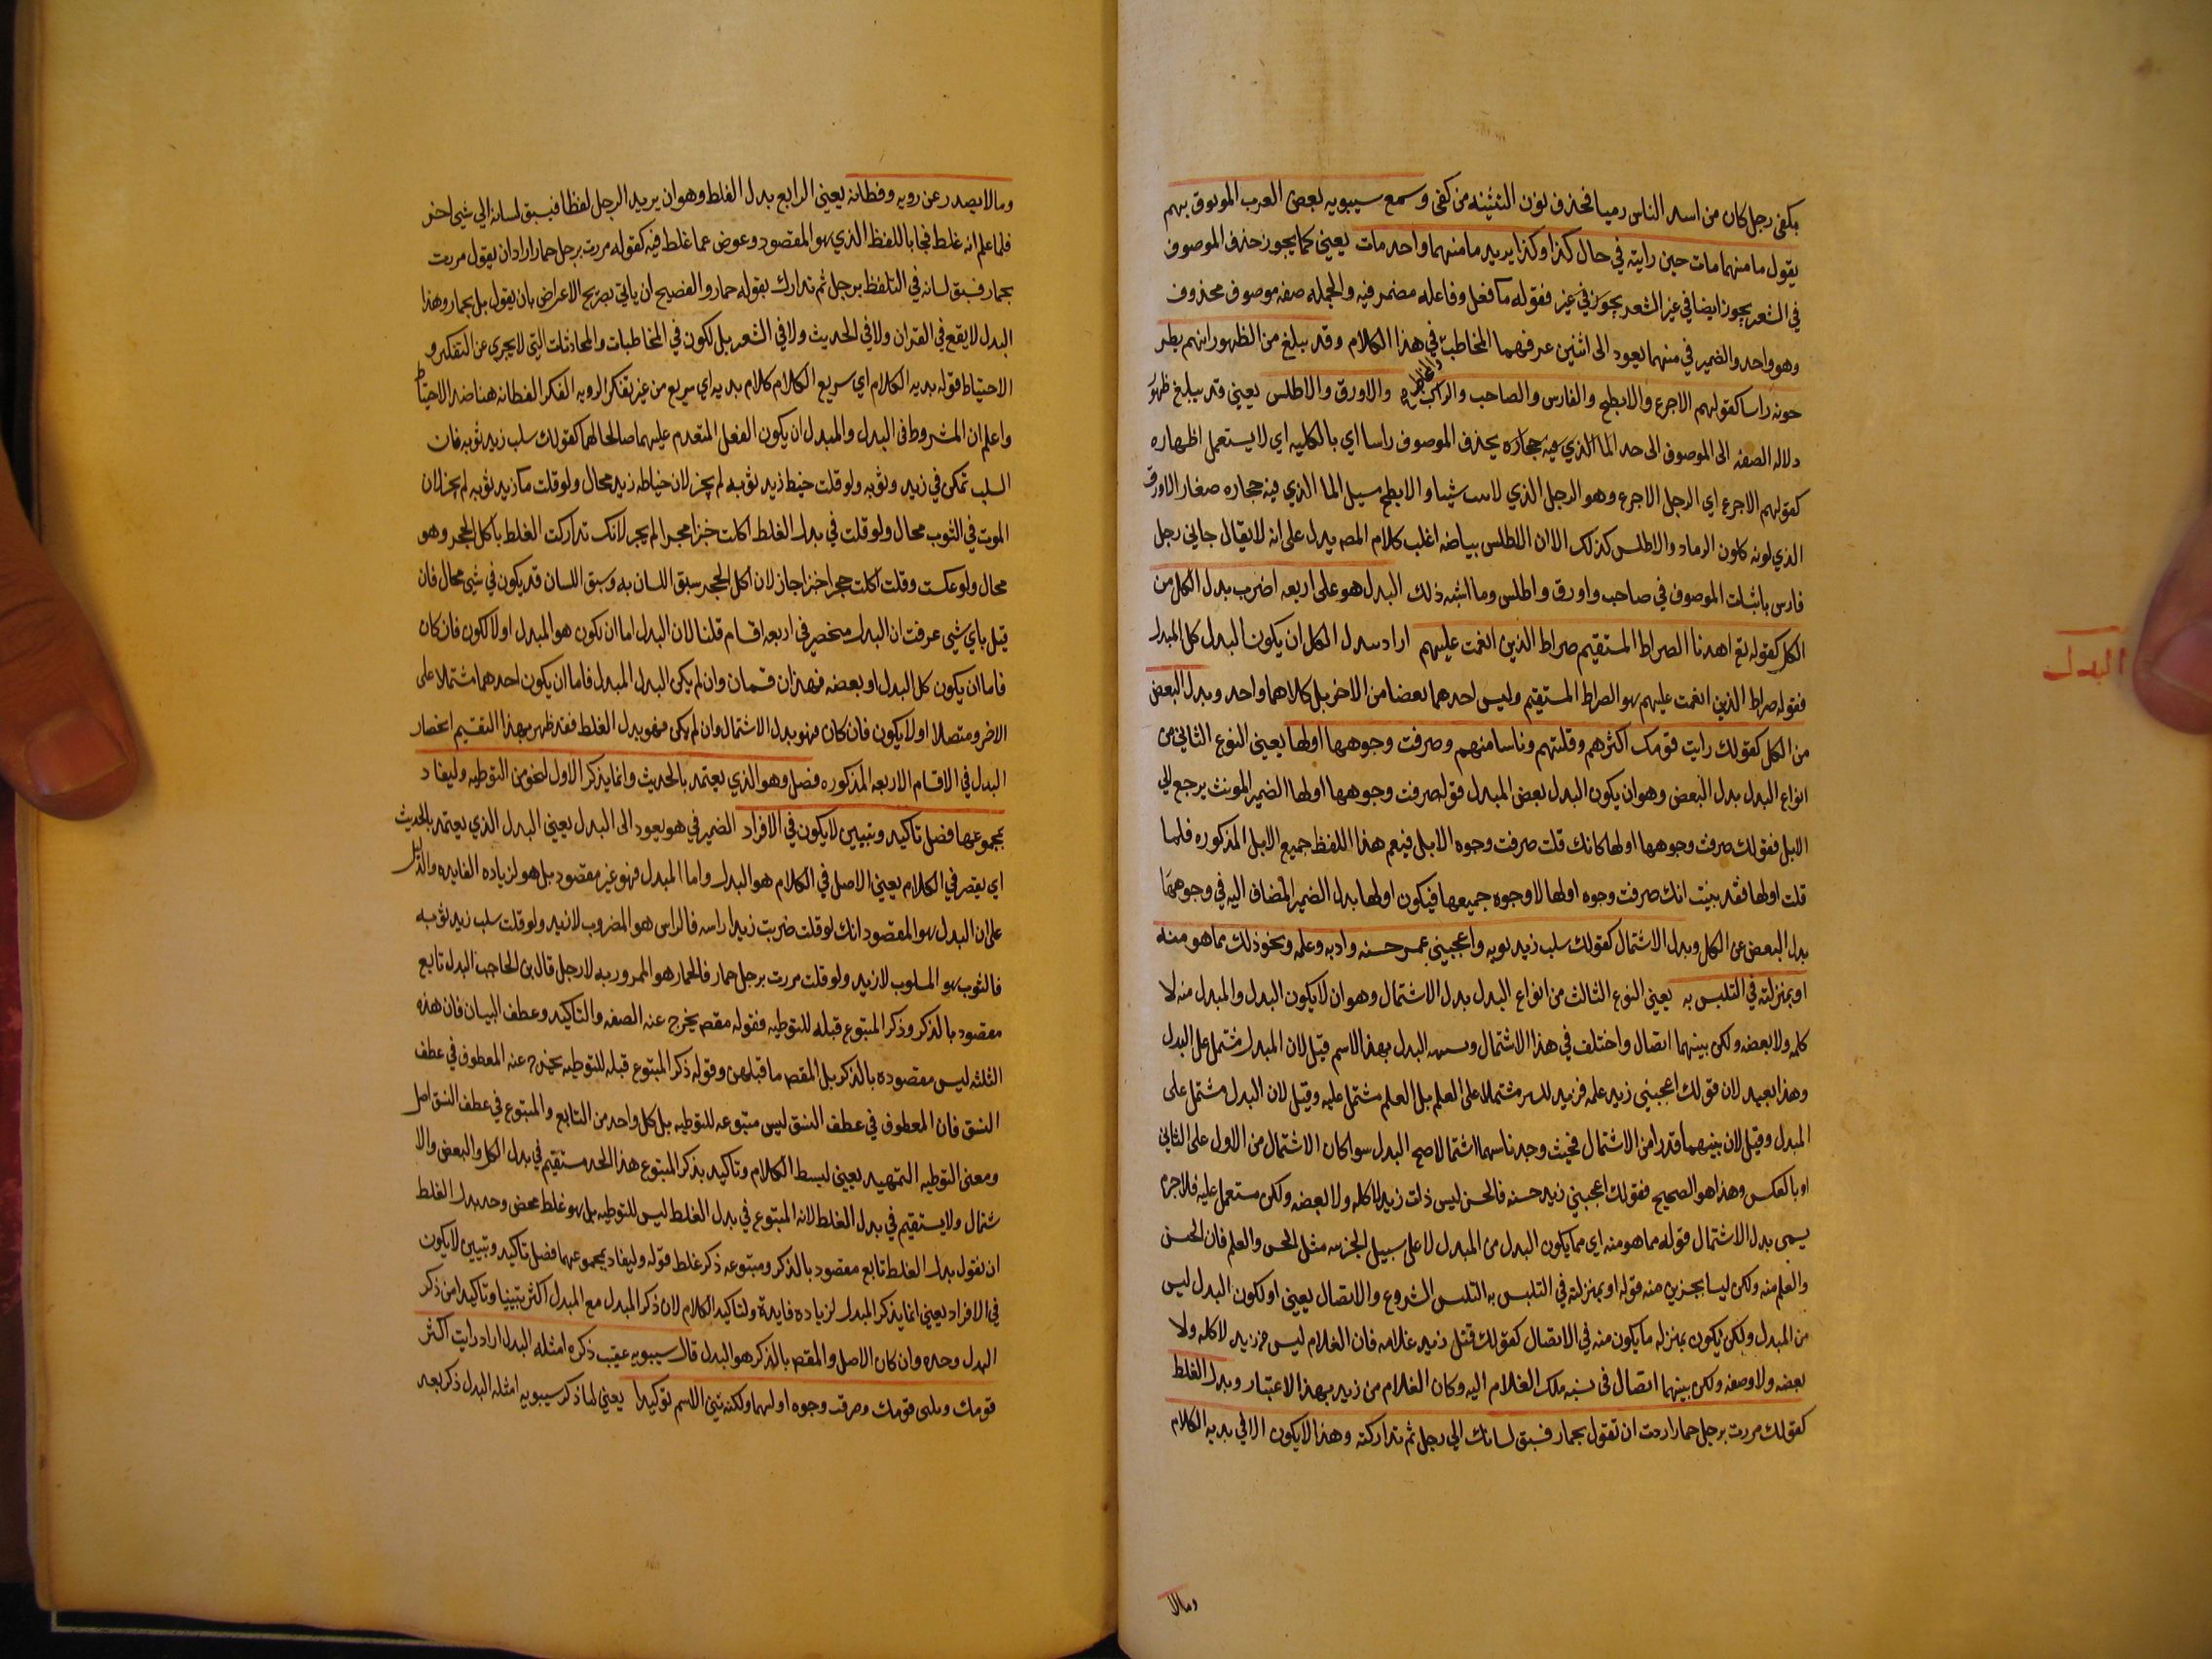 بكفى رجل كان من اسد الناس رميا فحذف نون التثنيه من كفى وسمع سيبويه بعض العرب الموثوق بهم
يقول ما منهما مات حين رايته في حال كذا وكذا يريد ما منهما واحد مات يعني كما يجوز حذف الموصوف
في الشعر يجوز ايضا في غير الشعر يجوز في غير فقوله ما فعل وفاعله مضمر فيه والجمله صفه موصوف محذوف
وهو واحد والضمير في منهما يعود الى اثنين عرفهما المخاطب في هذا الكلام وقد يبلغ من الظهور انهم يطر
حونه راسا كقولهم الاجرع والابطح والفارس والصاحب والراكب والاورق والاطلس يعني قد يبلغ ظهور
دلاله الصفه الى الموصوف الى حد يحذف الموصوف راسا اي بالكليه اي لا يستعمل اظهاره
كقولهم الاجرع اي الرجل الاجرع وهو الرجل الذي لا شيا والابطح مسيل الما الذي فيه حجاره صغار الاورق
الذي لونه كلون الرماد والاطلس كذلك الا ان الاطلس بياضه اغلب كلام المص يدل على انه لا يقال جاني رجل
فارس باثبات الموصوف في صاحب واورق واطلس وما اشبه ذلك البدل هو على اربعه اضرب بدل الكل من
الكل كقوله تع اهدنا الصراط المستقيم صراط الذين انعمت عليهم اراد ببدل الكل ان يكون البدل كل المبدل
فقوله صراط الذين انعمت عليهم هو الصراط المستقيم وليس احدهما بعضا من الاخر بل كلاهما واحد وبدل البعض
من الكل كقولك رايت قومك اكثرهم وقلتهم وناسا منهم وصرفت وجوهها اولها يعني النوع الثاني من
انواع البدل بدل البعض وهو ان يكون البدل بعض المبدل قوله صرفت وجوهها اولها الضمير المونث يرجع الي
الابل فقولك صرفت وجوهها اولها كانك قلت صرفت وجوه الابل فيعم هذا اللفظ جميع الابل المذكوره فلما
قلت اولها فقد بينت انك صرفت وجوه اولها لا وجوه جميعها فيكون اولها بدل الضمير المضاف اليه في وجوهها
بدل البعض عن الكل وبدل الاشتمال كقولك سلب زيد ثوبه واعجبني عمرو حسنه وادبه وعلمه ونحو ذلك مما هو منه
او بمنزلته في التلبس به يعني النوع الثالث من انواع البدل بدل الاشتمال وهو ان لا يكون البدل والمبدل منه لا
كله ولا بعضه ولكن بينهما اتصال واختلف في هذا الاشتمال وسميه البدل بهذا الاسم قيل لان المبدل مشتمل على البدل
وهذا بعيد لان قولك اعجبني زيد علمه فزيد ليس مشتملا على العلم بل العلم مشتمل عليه وقيل لان البدل مشتمل على
المبدل وقيل لان بينهما قدرا من الاشتمال فحيث وجدنا بينهما اشتمالا صح البدل سوا كان الاشتمال من الاول على الثاني
او بالعكس وهذا هو الصحيح فقولك اعجبني زيد حسنه فالحسن ليس ذات زيد لا كله ولا بعضه ولكن مشتمل عليه فلا جرم
يسمى بدل الاشتمال قوله مما هو منه اي مما يكون البدل من المبدل لا على سبيل الجزييه مثل الحسن والعلم فان الحسن
والعلم منه ولكن ليسا بجزيين منه قوله او بمنزلته في التلبس به التلبس الشروع والاتصال يعني او لكون البدل ليس
من المبدل ولكن يكون بمنزله ما يكون منه في الاتصال كقولك قتل زيد غلامه فان الغلام ليس من زيد لا كله ولا
بعضه ولا وصفه ولكن بينهما اتصال في نسبه ملك الغلام اليه وكان الغلام من زيد بهذا الاعتبار وبدل الغلط
كقولك مررت برجل حمار اردت ان تقول بحمار فسبق لسانك الي رجل ثم تداركته وهذا لا يكون الا في بديه الكلام
وما لا
البدل
وما لا يصدر عن رويه وفطانه يعني الرابع بدل الغلط وهو ان يريد الرجل لفظا فيسبق لسانه الي شي اخر
فلما علم انه غلط فجا باللفظ الذي هو المقصود وعوض عما غلط فيه كقوله مررت برجل حمار اراد ان يقول مررت
بحمار فسبق لسانه في التلفظ برجل ثم تدارك بقوله حمار والفصيح ان ياتي بصريح الاعراض بان يقول بل بحمار وهذا
البدل لا يقع في القران ولا في الحديث ولا في الشعر بل لكون في المخاطبات والمحادثات التي لا يجري عن التفكير و
الاحتياط قوله بديه الكلام اي سريع الكلام كلام بديه اي سريع من غير تفكر الرويه الفكر الفطانه هنا ضد الاحتياط
واعلم ان المشروط في البدل والمبدل ان يكون الفعل المتقدم عليهما صالحا لهما كقولك سلب زيد ثوبه فان
السلب تمكن في زيد وثوبه ولو قلت خيط زيد ثوبه لم يجز لان خياطه زيد محال ولو قلت مات زيد ثوبه لم يجز لان
الموت في الثوب محال ولو قلت في بدل الغلط اكلت خبزا حجرا لم يجز لانك تداركت الغلط باكل الحجر وهو
محال ولو عكست وقلت اكلت حجرا خبزا جاز لان اكل الحجر سبق اللسان به وسبق اللسان قد يكون في شي محال فان
قيل باي شي عرفت ان البدل منحصر في اربعه اقسام قلنا لان البدل اما ان تكون هو المبدل او لا لكون فان كان
فاما ان يكون كل البدل او بعضه فهذان قسمان وان لم يكن البدل المبدل فاما ان يكون احدهما مشتملا على
الاخر ومتصلا او لا يكون فان كان فهو بدل الاشتمال وان لم يكن فهو بدل الغلط فقد ظهر بهذا التقسيم انحصار
البدل في الاقسام الاربعه المذكوره فصل وهو الذي يعتمد بالحديث وانما يذكر الاول لنحو من التوطيه وليفاد
بمجموعهما فضل تاكيد وتبيين لا يكون في الافراد الضمير في هو يعود الى البدل يعني البدل الذي يعتمد بالحديث
اي يقصر في الكلام يعني الاصل في الكلام هو البدل واما المبدل فهو غير مقصود بل هو لزياده الفايده والدليل
على ان البدل هو المقصود انك لو قلت ضربت زيدا راسه فالراس هو المضروب لا زيد ولو قلت سلب زيد ثوبه
فالثوب هو المسلوب لا زيد ولو قلت مررت برجل حمار فالحمار هو الممرور به لا رجل قال ابن الحاجب البدل تابع
مقصود بالذكر وذكر المتبوع قبله للتوطيه فقوله مقص يخرج عنه الصفه والتاكيد وعطف البيان فان هذه
الثلثه ليس مقصوده بالذكر بل المقص ما قبلهن وقوله ذكر المتبوع قبله للتوطيه يخرج عنه المعطوف في عطف
النسق فان المعطوف في عطف النسق ليس متبوعه للتوطيه بل كل واحد من التابع والمتبوع في عطف النسق اصل
ومعنى التوطيه التمهيد يعني لبسط الكلام وتاكيد بذكر المتبوع هذا الحد مستقيم في بدل الكل والبعض والا
شتمال ولا يستقيم في بدل الغلط لانه المتبوع في بدل الغلط ليس للتوطيه بل هو غلط محض وحد بدل الغلط
ان تقول بدل الغلط تابع مقصود بالذكر ومتبوعه ذكر غلط قوله وليفاد بمجموعهما فضل تاكيد وتبيين لا يكون
في الافراد يعني انما يذكر المبدل لزياده فايدة ولتاكيد الكلام لان ذكر المبدل مع المبدل اكثر تبيينا وتاكيدا من ذكر
البدل وحده وان كان الاصل والمقص بالذكر هو البدل قال سيبويه عقيب ذكره امثله البدل اراد رايت اكثر
قومك وثلثي قومك وصرفت وجوه اولهما ولكنه ثني الاسم توكيدا يعني لما ذكر سيبويه امثله البدل ذكر بعد